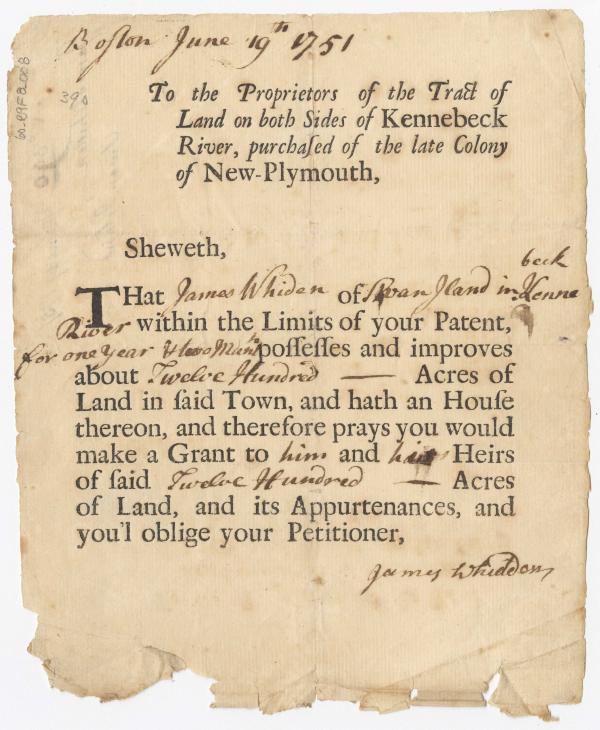 Boston June 19th 1751
390
To the Proprietors of the Tract of
Land on both Sides of Kennebeck
River, purchaſed of the late Colony
of New-Plymouth,
Sheweth,
beck
THat James Whiden of Swan Iland in Kenne
River within the Limits of your Patent,
for one Year & two Mont. poſſeſſes and improves
about Twelve Hundred — Acres of
Land in ſaid Town, and hath an Houſe
thereon, and therefore prays you would
make a Grant to him and his Heirs
of ſaid Twelve Hundred — Acres
of Land, and its Appurtenances, and
you'l oblige your Petitioner,
James Whiddon